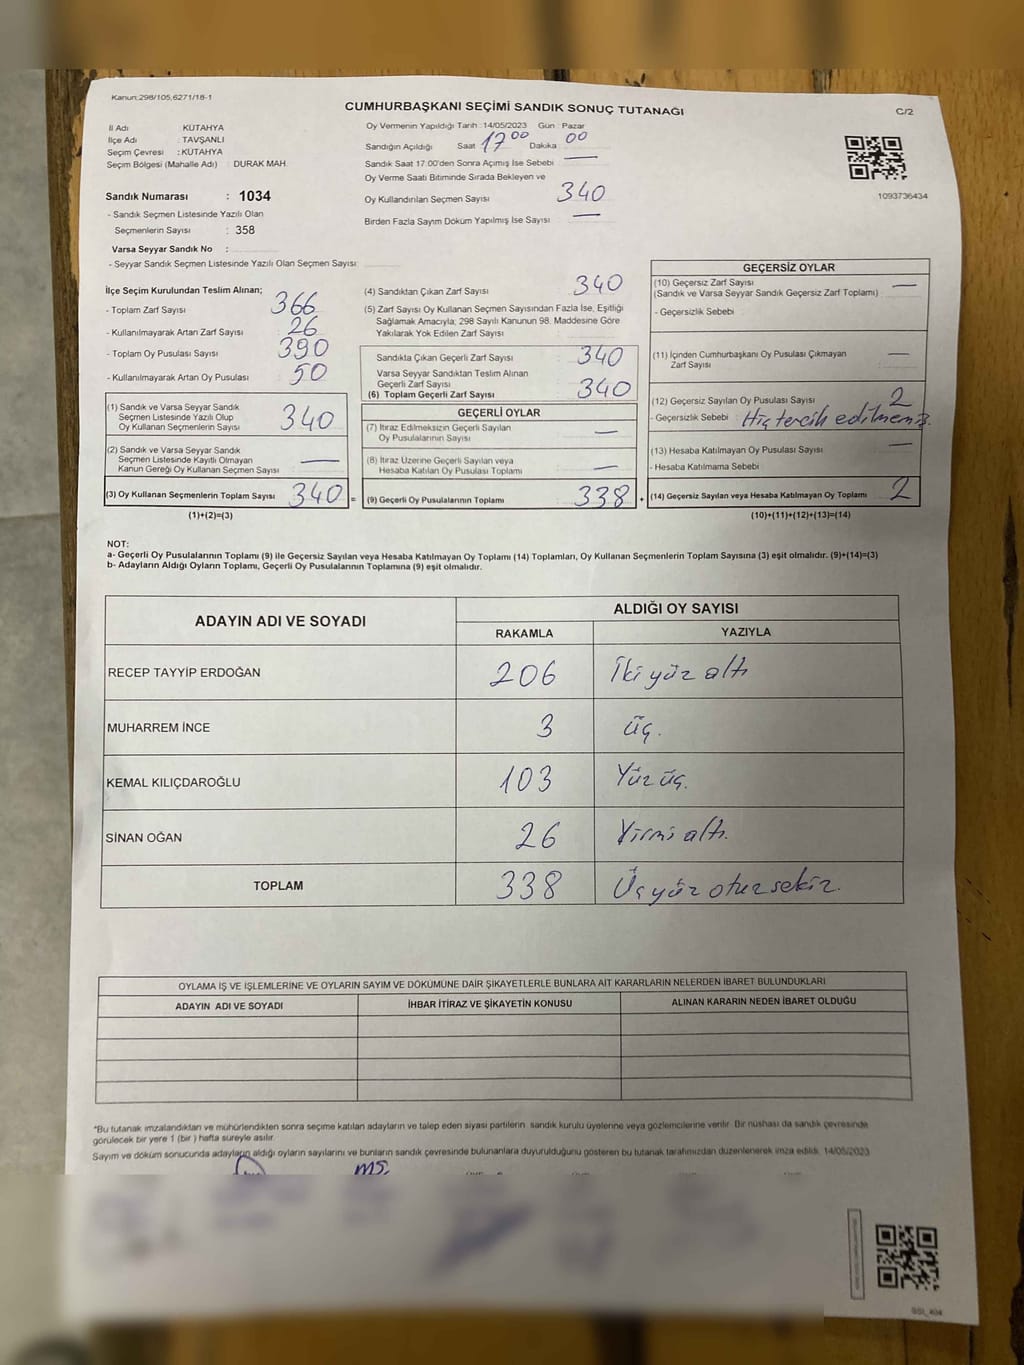 Kanun:298/105,6271/18-1
CUMHURBAŞKANI SEÇİMİ SANDIK SONUÇ TUTANAĞI
C/2
İl Adı KÜTAHYA
İlçe Adı : TAVŞANLI
Seçim Çevresi : KÜTAHYA
Seçim Bölgesi (Mahalle Adı) : DURAK MAH.
Sandık Numarası : 1034
- Sandık Seçmen Listesinde Yazılı Olan
Seçmenlerin Sayısı : 358
Varsa Seyyar Sandık No :
- Seyyar Sandık Seçmen Listesinde Yazılı Olan Seçmen Sayısı:
Oy Vermenin Yapıldığı Tarih :14/05/2023 Gün : Pazar
Sandığın Açıldığı Saat 17 00 Dakika 00
Sandık Saat 17.00'den Sonra Açımış İse Sebebi —
Oy Verme Saati Bitiminde Sırada Bekleyen ve
Oy Kullandırılan Seçmen Sayısı 340
Birden Fazla Sayım Döküm Yapılmış İse Sayısı —
1093736434
İlçe Seçim Kurulundan Teslim Alınan;
- Toplam Zarf Sayısı 366
- Kullanılmayarak Artan Zarf Sayısı 26
- Toplam Oy Pusulası Sayısı 390
- Kullanılmayarak Artan Oy Pusulası 50
(1) Sandık ve Varsa Seyyar Sandık
Seçmen Listesinde Yazılı Olup
Oy Kullanan Seçmenlerin Sayısı 340
(2) Sandık ve Varsa Seyyar Sandık
Seçmen Listesinde Kayıtlı Olmayan
Kanun Gereği Oy Kullanan Seçmen Sayısı —
(3) Oy Kullanan Seçmenlerin Toplam Sayısı 340 =
(1)+(2)=(3)
(4) Sandıktan Çıkan Zarf Sayısı 340
(5) Zarf Sayısı Oy Kullanan Seçmen Sayısından Fazla İse, Eşitliği
Sağlamak Amacıyla; 298 Sayılı Kanunun 98. Maddesine Göre
Yakılarak Yok Edilen Zarf Sayısı
Sandıkta Çıkan Geçerli Zarf Sayısı 340
Varsa Seyyar Sandıktan Teslim Alınan
Geçerli Zarf Sayısı
(6) Toplam Geçerli Zarf Sayısı 340
GEÇERLİ OYLAR
(7) İtiraz Edilmeksizin Geçerli Sayılan
Oy Pusulalarının Sayısı —
(8) İtiraz Üzerine Geçerli Sayılan veya
Hesaba Katılan Oy Pusulası Toplamı —
(9) Geçerli Oy Pusulalarının Toplamı 338 +
GEÇERSİZ OYLAR
(10) Geçersiz Zarf Sayısı —
(Sandık ve Varsa Seyyar Sandık Geçersiz Zarf Toplamı)
- Geçersizlik Sebebi
(11) İçinden Cumhurbaşkanı Oy Pusulası Çıkmayan —
Zarf Sayısı
(12) Geçersiz Sayılan Oy Pusulası Sayısı 2
- Geçersizlik Sebebi : Hiç tercih edilmemiş.
(13) Hesaba Katılmayan Oy Pusulası Sayısı —
- Hesaba Katılmama Sebebi
(14) Geçersiz Sayılan veya Hesaba Katılmayan Oy Toplamı 2
(10)+(11)+(12)+(13)=(14)
NOT:
a- Geçerli Oy Pusulalarının Toplamı (9) ile Geçersiz Sayılan veya Hesaba Katılmayan Oy Toplamı (14) Toplamları, Oy Kullanan Seçmenlerin Toplam Sayısına (3) eşit olmalıdır. (9)+(14)=(3)
b- Adayların Aldığı Oyların Toplamı, Geçerli Oy Pusulalarının Toplamına (9) eşit olmalıdır.
ADAYIN ADI VE SOYADI
ALDIĞI OY SAYISI
RAKAMLA YAZIYLA
RECEP TAYYİP ERDOĞAN 206 İki yüz altı
MUHARREM İNCE 3 üç.
KEMAL KILIÇDAROĞLU 103 Yüz üç.
SİNAN OĞAN 26 Yirmi altı.
TOPLAM 338 Üç yüz otuz sekiz.
OYLAMA İŞ VE İŞLEMLERİNE VE OYLARIN SAYIM VE DÖKÜMÜNE DAİR ŞİKAYETLERLE BUNLARA AİT KARARLARIN NELERDEN İBARET BULUNDUKLARI
ADAYIN ADI VE SOYADI İHBAR İTİRAZ VE ŞİKAYETİN KONUSU ALINAN KARARIN NEDEN İBARET OLDUĞU
*Bu tutanak imzalandıktan ve mühürlendikten sonra seçime katılan adayların ve talep eden siyasi partilerin sandık kurulu üyelerine veya gözlemcilerine verilir. Bir nüshası da sandık çevresinde
görülecek bir yere 1 (bir) hafta süreyle asılır.
Sayım ve döküm sonucunda adayların aldığı oyların sayılarını ve bunların sandık çevresinde bulunanlara duyurulduğunu gösteren bu tutanak tarafımızdan düzenlenerek imza edildi. 14/05/2023